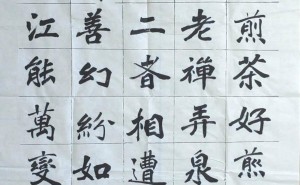 煎茶好煎
老禪弄泉
二者相遭
善幻紛如
江能萬變